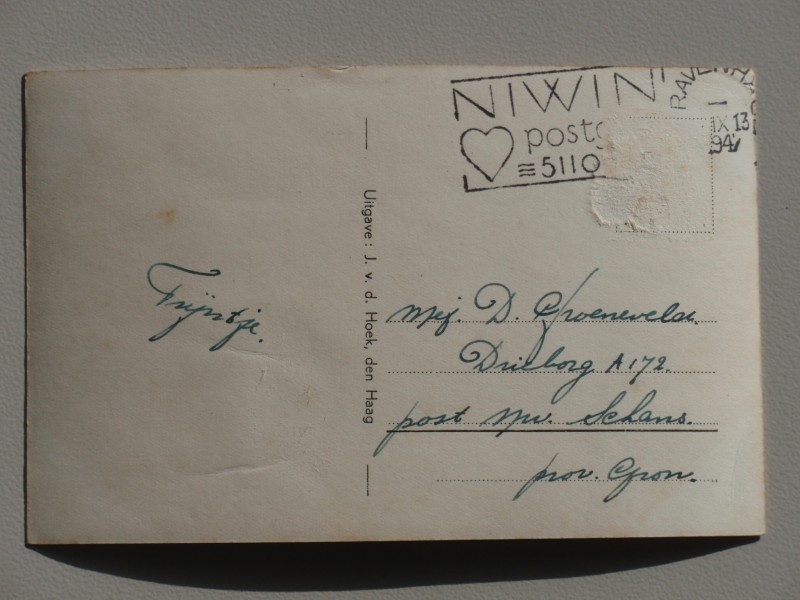 NIWIN
postg
5110
IX 13
Uitgave: J. v. d. Hoek, den Haag
Trijntje.
Mej. D. Groeneveld.
Drieborg A 172.
post Nw. Schans.
prov. Gron.